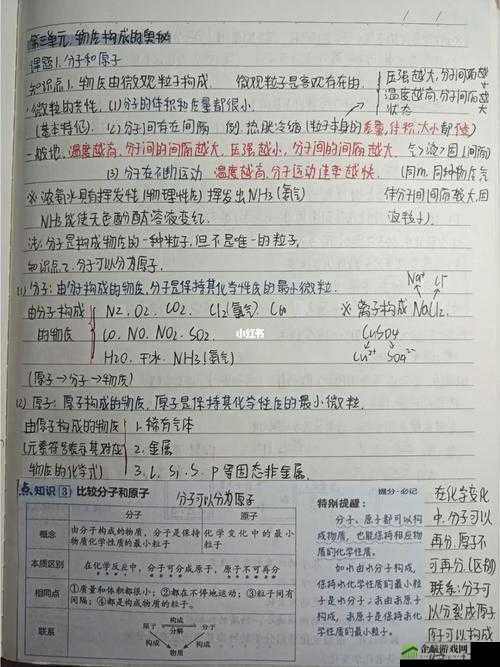 第三单元,物质构成的奥秘
课题1.分子和原子
知识点1.物质由微观粒子构成
压强越大,分子间隔越小
温度越高,分子间隔越大
状态
微粒的共性,(1)分子的体积和质量都很小.
(基本特征). (2)分子间有间隔 例.热胀冷缩(粒子本身的质量,体积,大小都不变)
一般地,温度越高,分子间的间隔越大,压强越小,分子间的间隔越大.
(3)分子在不断运动 温度越高,分子运动速率越快.
※浓氨水具有挥发性(物理性质)挥发出NH3(氨气)
NH3能使无色酚酞溶液变红.
注:分子是构成物质的一种粒子,但不是唯一的粒子,
知识点2.分子可以分为原子.
(1)分子:由分子构成的物质,分子是保持其化学性质的最小微粒.
由分子构成
的物质
N2.O2.CO2.Cl2(氯气).
CO.NO.NO2.SO2.
H2O.干冰.NH3(氨气)
Na+ Cl-
※离子构成
CuSO4
Cu2+ SO42-
(原子→分子→物质)
(2)原子:原子构成的物质,原子是保持其化学性质的最小微粒.
由原子构成的物质
(元素符号表示其对应
物质的化学式)
1.稀有气体
2.金属
3.C,Si,S,P等固态非金属.
小红书
点 知识 3 比较分子和原子
分子可以分为原子
分子 原子
概念 由分子构成的物质,分子是保持物质化学性质的最小粒子 化学变化中的最小粒子
本质区别 在化学反应中,分子可分成原子,原子不可再分
相同点 ①质量和体积都很小;②都在不停地运动;③粒子间有间隔;④都是构成物质的粒子。
联系 原子 构成 分解 分子
构成 构成
物质
提分·必记
特别提醒:
分子、原子都可以构
成物质,也能保持相应物
质的化学性质。
如水由水分子构成,
保持水化学性质的最小粒
子是水分子;汞由汞原子
构成,汞原子是保持汞化
学性质的最小粒子。
在化学变化
中.分子可以
再分,原子不
可再分.(区别)
联系:分子可
以分裂成原子
原子可以构成
企航游戏网